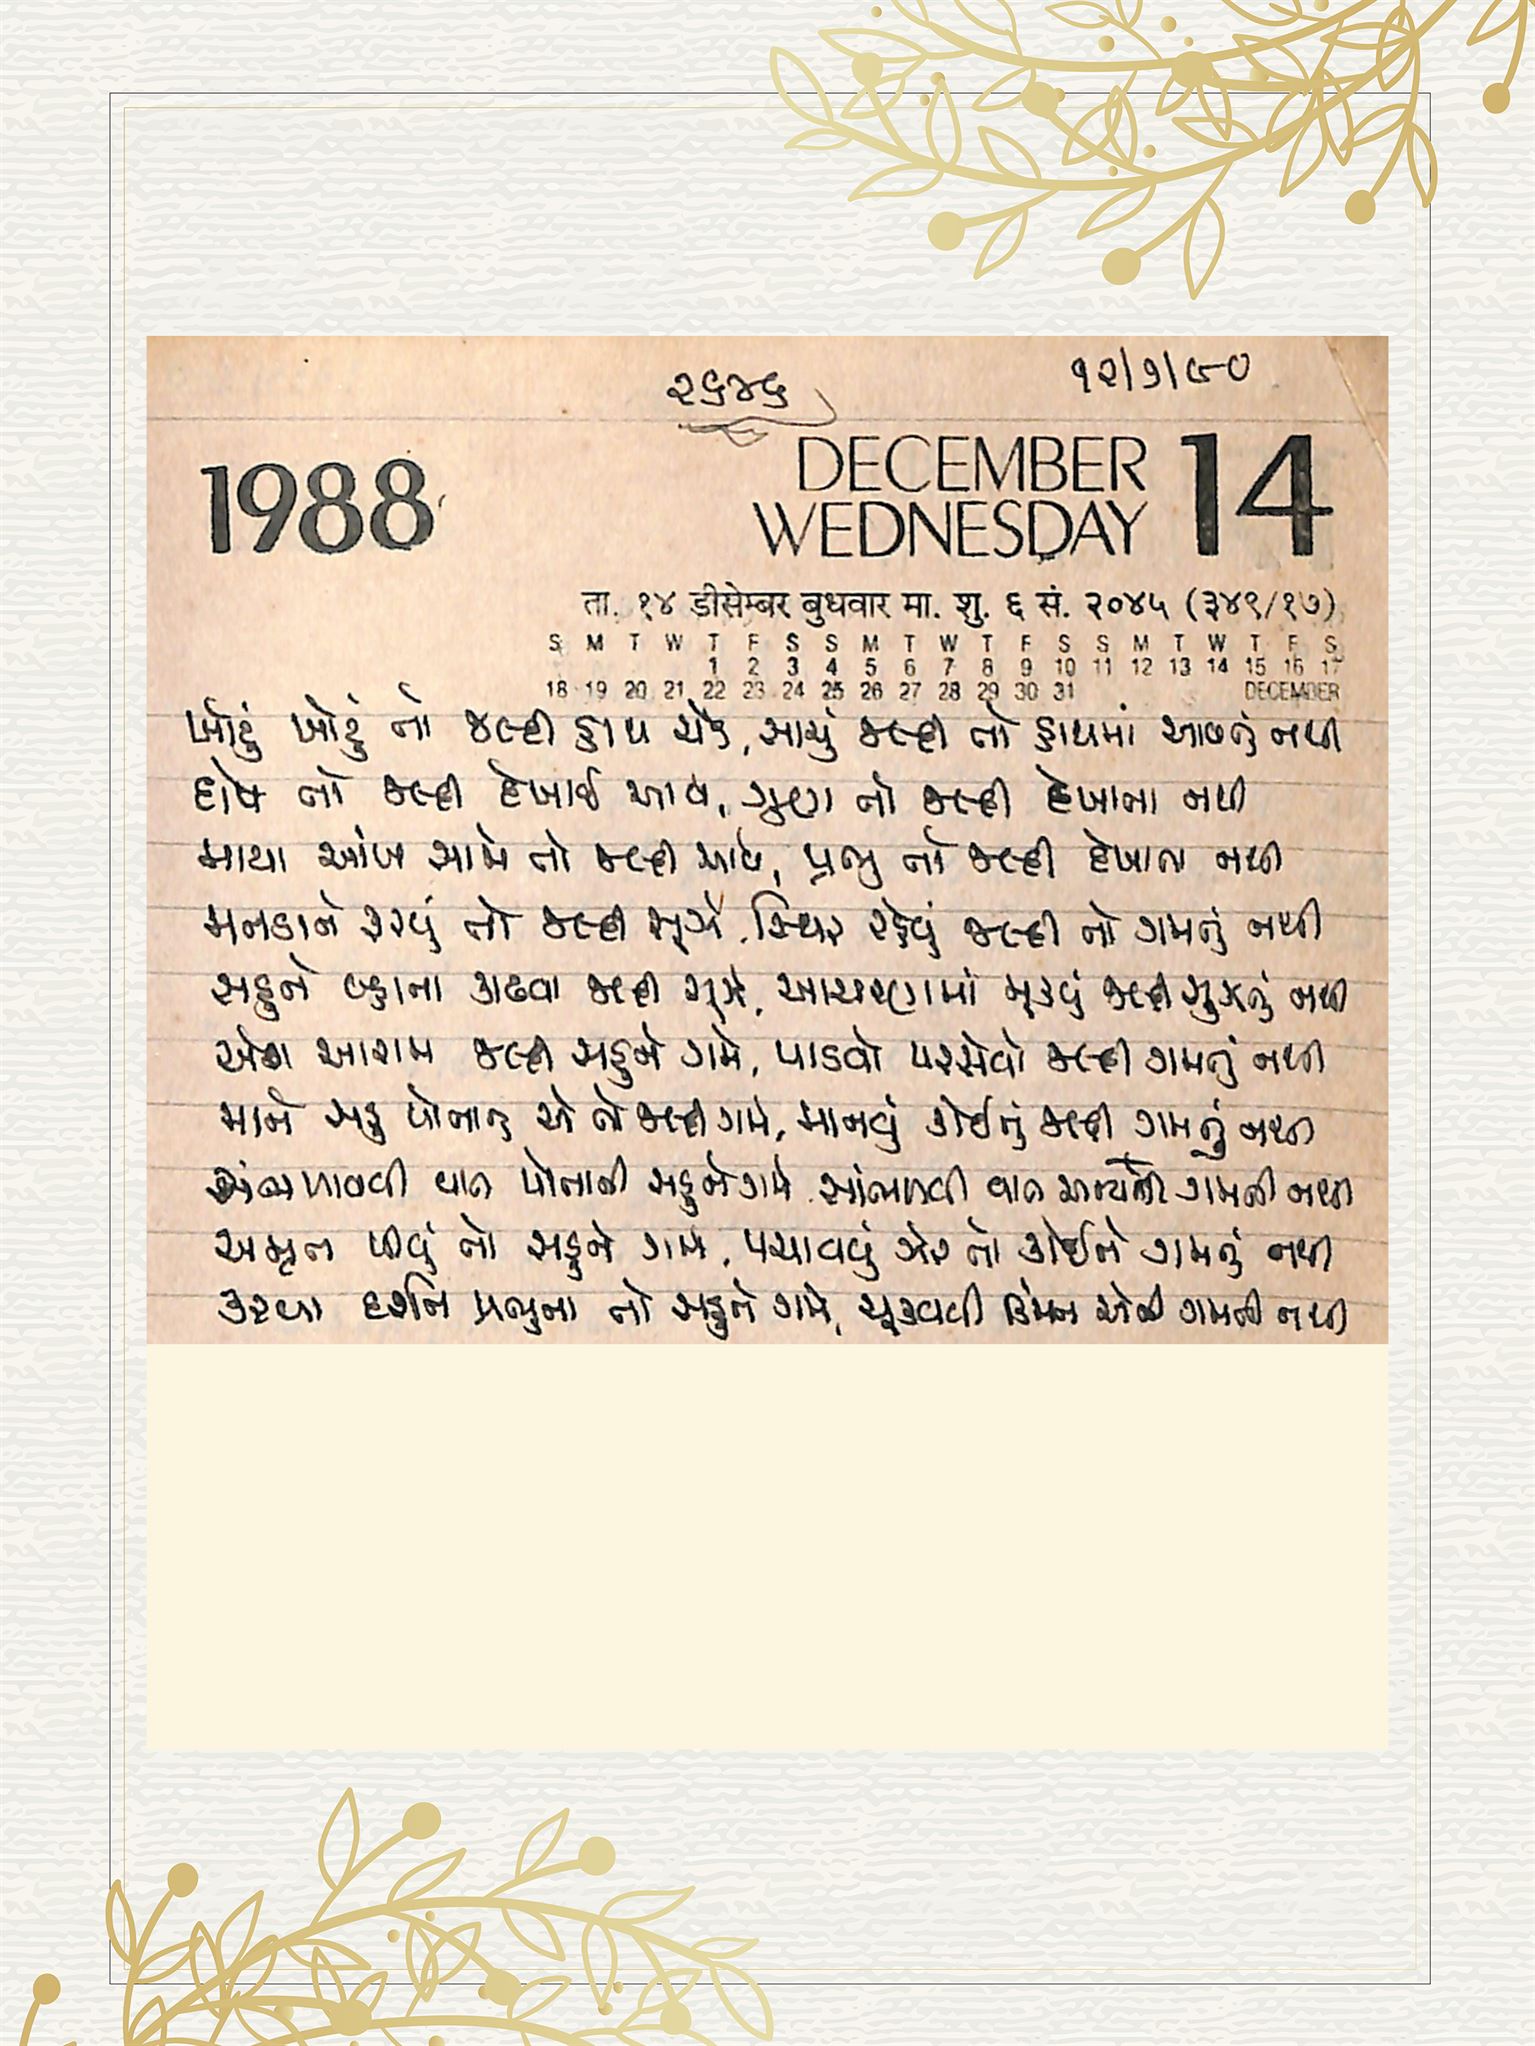 ૨૬૪૬
૧૨/૭/૯૦
1988
DECEMBER 14
WEDNESDAY
ता. १४ डीसेम्बर बुधवार मा. शु. ६ सं. २०४५ (३४९/१७)
S M T W T F S S M T W T F S S M T W T F S
1 2 3 4 5 6 7 8 9 10 11 12 13 14 15 16 17
18 19 20 21 22 23 24 25 26 27 28 29 30 31 DECEMBER
ખોટું ખોટું તો જલ્દી હાથ ચડે, સાચું જલ્દી તો હાથમાં આવતું નથી
દોષ તો જલ્દી દેખાઈ આવે, ગુણ તો જલ્દી દેખાતા નથી
માયા આંખ સામે તો જલ્દી આવે, પ્રભુ તો જલ્દી દેખાતા નથી
મનડાને ફરવું તો જલ્દી સૂઝે, સ્થિર રહેવું જલ્દી તો ગમતું નથી
સહુને બહાના કાઢવા જલ્દી સૂઝે, આચરણમાં મૂકવું જલ્દી સુઝતું નથી
એશ આરામ જલ્દી સહુને ગમે, પાડવો પરસેવો જલ્દી ગમતું નથી
માને સહુ પોતાનું એ તો જલ્દી ગમે, માનવું કોઈનું જલ્દી ગમતું નથી
સંભળાવવી વાત પોતાની સહુને ગમે, સાંભળવી વાત અન્યની ગમતી નથી
અમૃત પીવું તો સહુને ગમે, પચાવવું ઝેર તો કોઈને ગમતું નથી
કરવા દર્શન પ્રભુના તો સહુને ગમે, ચૂકવવી કિંમત એની ગમતી નથી